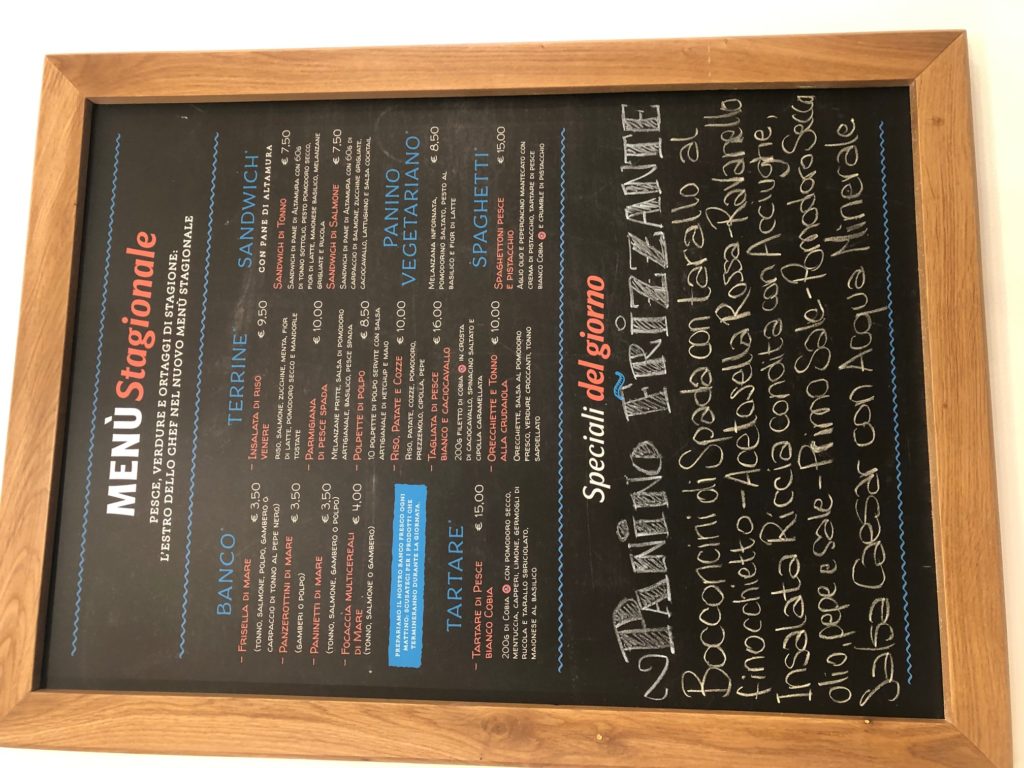 MENÙ Stagionale
PESCE, VERDURE E ORTAGGI DI STAGIONE:
L'ESTRO DELLO CHEF NEL NUOVO MENÙ STAGIONALE
BANCO*
- FRISELLA DI MARE € 3,50
(TONNO, SALMONE, POLPO, GAMBERO O
CARPACCIO DI TONNO AL PEPE NERO)
- PANZEROTTINI DI MARE € 3,50
(GAMBERI O POLPO)
- PANINETTI DI MARE € 3,50
(TONNO, SALMONE, GAMBERO O POLPO)
- FOCACCIA MULTICEREALI
DI MARE € 4,00
(TONNO, SALMONE O GAMBERO)
PREPARIAMO IL NOSTRO BANCO FRESCO OGNI
MATTINO: SCUSATECI PER I PRODOTTI CHE
TERMINERANNO DURANTE LA GIORNATA.
TARTARE*
- TARTARE DI PESCE
BIANCO COBIA € 15,00
200G DI COBIA CON POMODORO SECCO,
MENTUCCIA, CAPPERI, LIMONE, GERMOGLI DI
RUCOLA E TARALLO SBRICIOLATO,
MAIONESE AL BASILICO
TERRINE*
- INSALATA DI RISO
VENERE € 9,50
RISO, SALMONE, ZUCCHINE, MENTA, FIOR
DI LATTE, POMODORO SECCO E MANDORLE
TOSTATE
- PARMIGIANA
DI PESCE SPADA € 10,00
MELANZANE FRITTE, SALSA DI POMODORO
ARTIGIANALE, BASILICO, PESCE SPADA
- POLPETTE DI POLPO € 8,50
10 POLPETTE DI POLPO SERVITE CON SALSA
ARTIGIANALE DI KETCHUP E MAIO
- RISO, PATATE E COZZE € 10,00
RISO, PATATE, COZZE, POMODORO,
PREZZEMOLO, CIPOLLA, PEPE
- TAGLIATA DI PESCE
BIANCO E CACIOCAVALLO € 16,00
200G FILETTO DI COBIA IN CROSTA
DI CACIOCAVALLO, SPINACINO SALTATO E
CIPOLLA CARAMELLATA
- ORECCHIETTE E TONNO
ALLA CRUDAIOLA € 10,00
ORECCHIETTE, SALSA AL POMODORO
FRESCO, VERDURE CROCCANTI, TONNO
SAPIELLATO
SANDWICH*
CON PANE DI ALTAMURA
SANDWICH DI TONNO € 7,50
SANDWICH DI PANE DI ALTAMURA CON 60G
DI TONNO SOTTOLIO, PESTO POMODORO SECCO,
FIOR DI LATTE, MAIONESE BASILICO, MELANZANE
GRIGLIATE E RUCOLA
SANDWICH DI SALMONE € 7,50
SANDWICH DI PANE DI ALTAMURA CON 60G DI
CARPACCIO DI SALMONE, ZUCCHINE GRIGLIATE,
CACIOCAVALLO, LATTUGHINO E SALSA COCKTAIL
PANINO
VEGETARIANO* € 8,50
MELANZANA INFORNATA,
POMODORINO SALTATO, PESTO AL
BASILICO E FIOR DI LATTE
SPAGHETTI
SPAGHETTONI PESCE
E PISTACCHIO € 15,00
AGLIO OLIO E PEPERONCINO MANTECATO CON
CREMA DI PISTACCHIO, TARTARE DI PESCE
BIANCO COBIA E CRUMBLE DI PISTACCHIO
Speciali del giorno
~ PANINO FRIZZANTE
Bocconcini di Spada con tarallo al
finocchietto - Acetosella Rossa - Ravanello
Insalata Riccia condita con Acciughe,
olio, pepe e sale - Primo Sale - Pomodoro Secco
Salsa Caesar con Acqua Minerale.